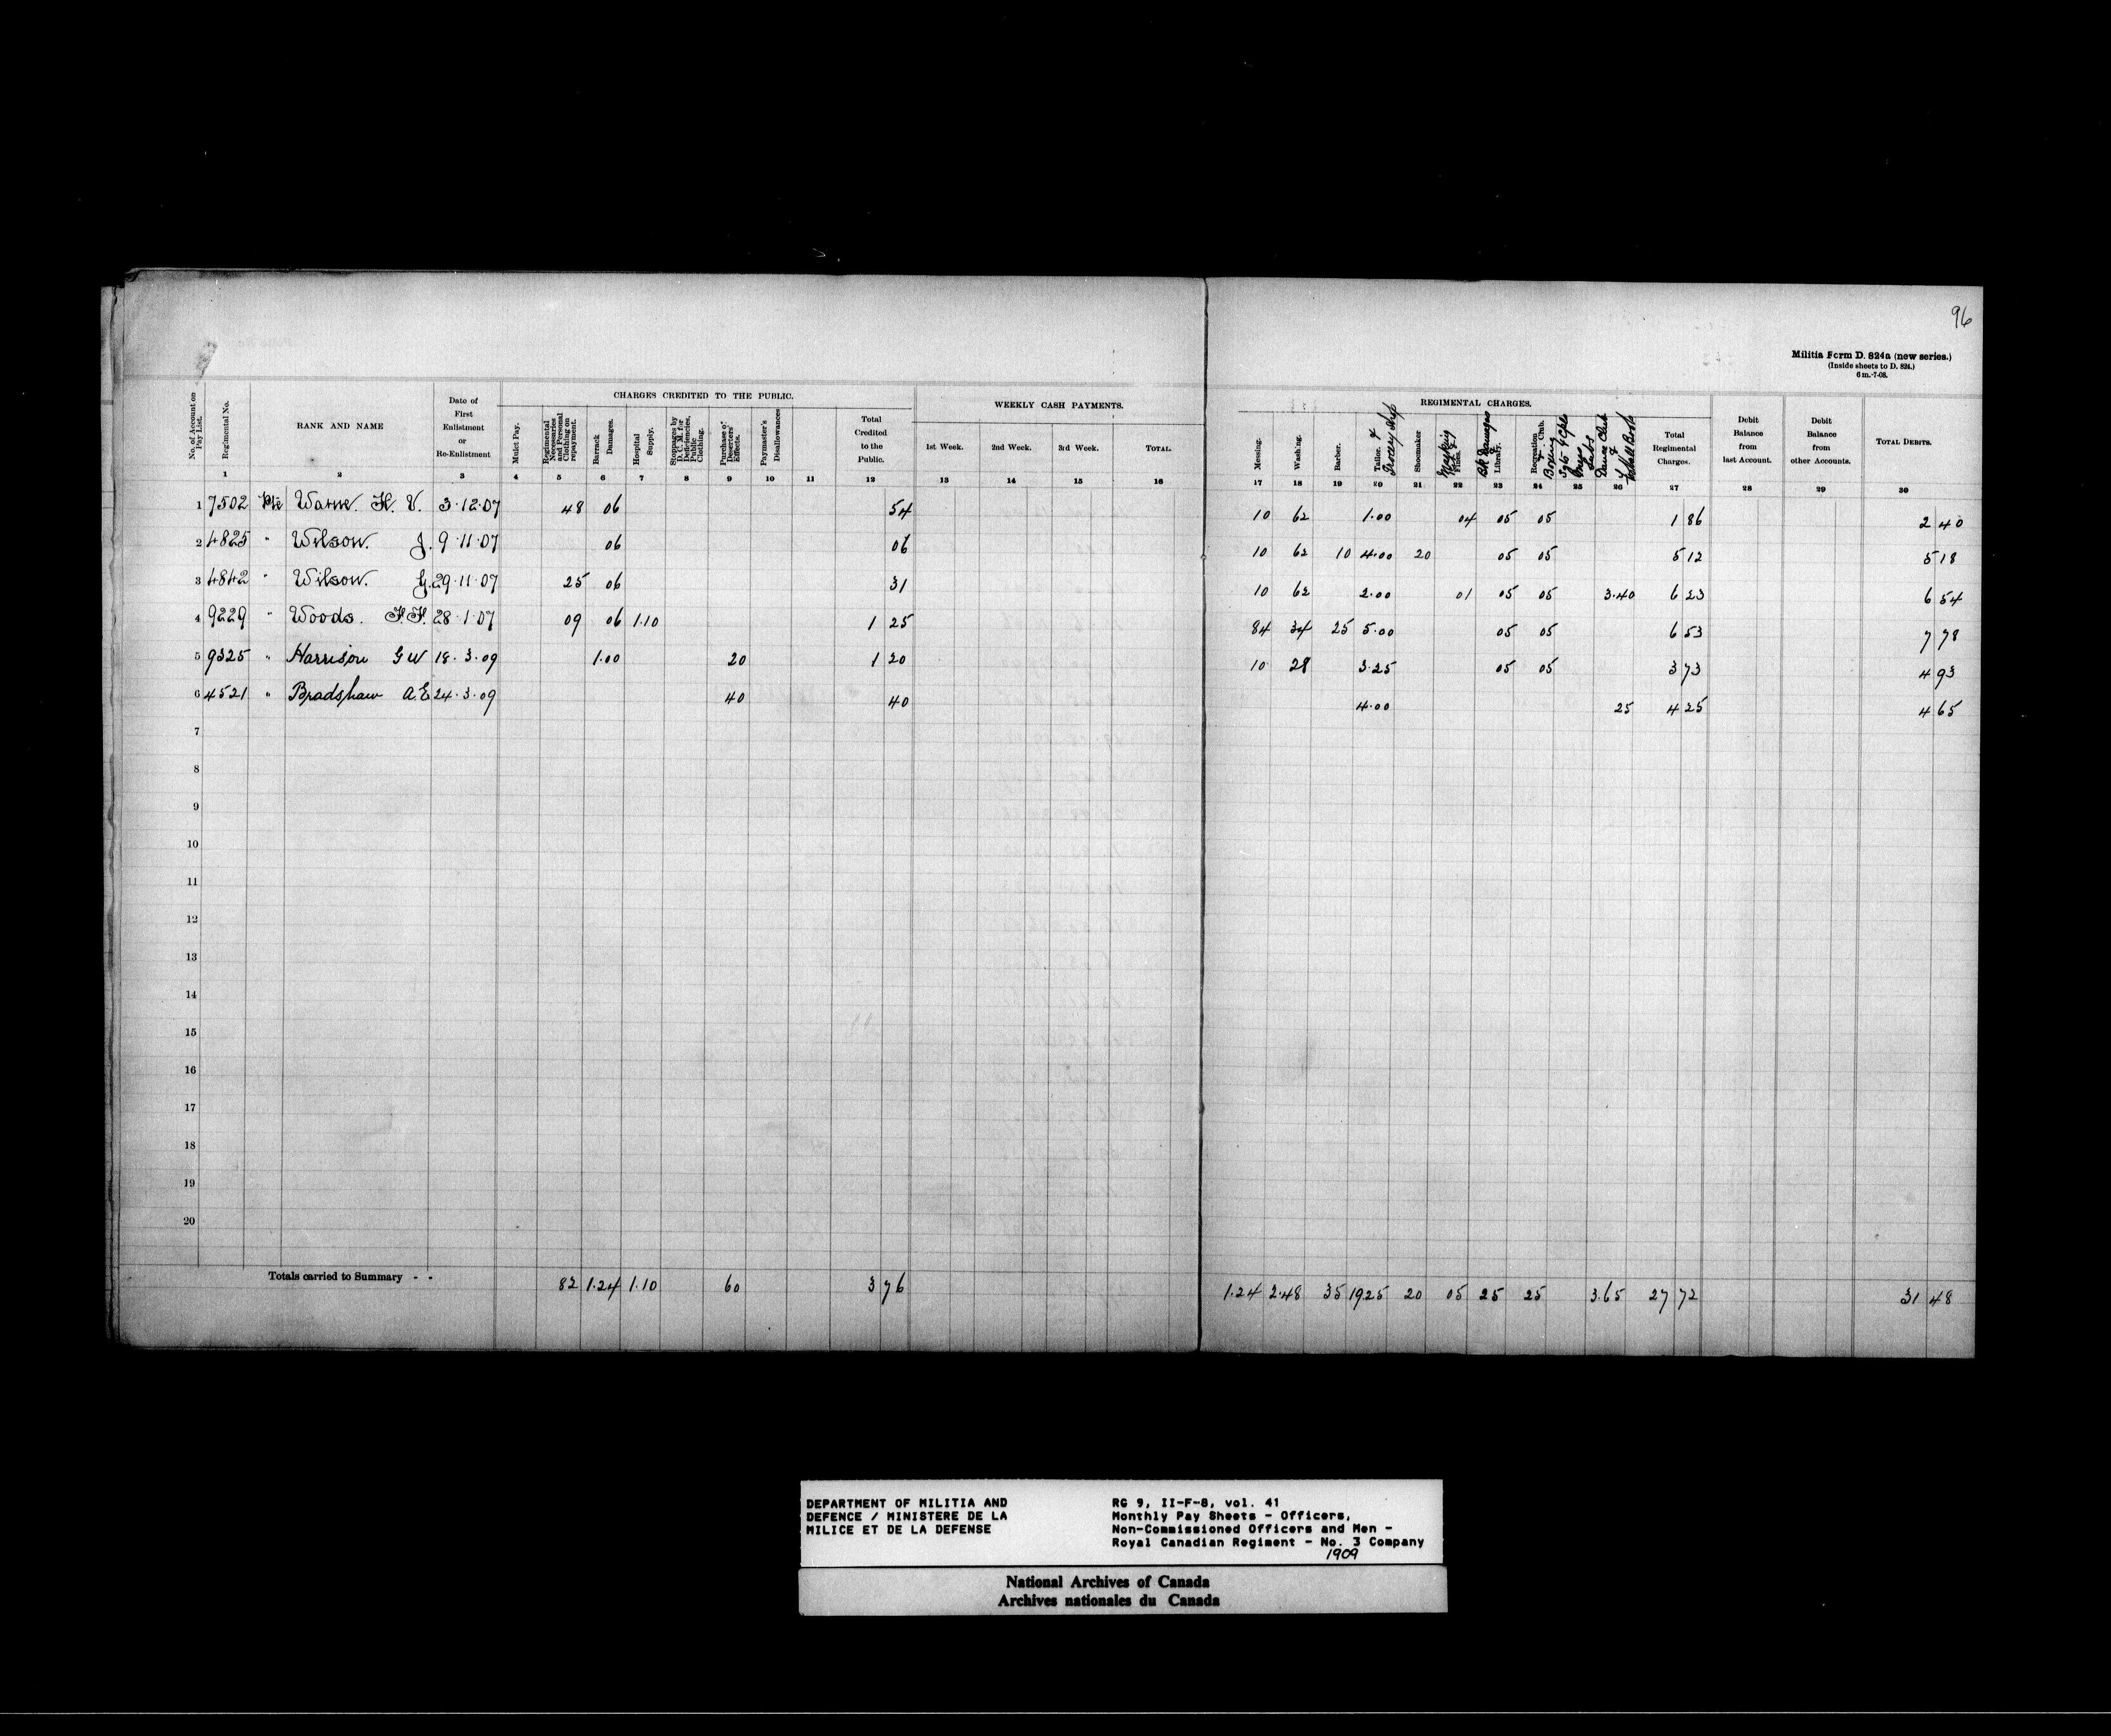 96
Militia Form D. 824a (new series.)
(Inside sheets to D. 824.)
6 m.-7-08.
No. of Account on Pay List.
Regimental No.
RANK AND NAME
Date of First Enlistment or Re-Enlistment
CHARGES CREDITED TO THE PUBLIC.
Mulct Pay.
Regimental Necessaries and Personal Clothing on repayment.
Barrack Damages.
Hospital Supply.
Stoppages by D. C. M. for Deficiencies, Public Clothing.
Purchase of Deserters' Effects.
Paymaster's Disallowances
Total Credited to the Public.
WEEKLY CASH PAYMENTS.
1st Week. 2nd Week. 3rd Week. TOTAL.
REGIMENTAL CHARGES.
Messing.
Wash'ng.
Barber.
Tailor. & Grocery Shop
Shoemaker
Marking Fines.
Bk Damages & Library.
Recreation & Club. Boxing
Sgts & Cpls Mess Subs
Dance Club & Football Boots
Total Regimental Charges.
Debit Balance from last Account.
Debit Balance from other Accounts.
TOTAL DEBITS.
1 2 3 4 5 6 7 8 9 10 11 12 13 14 15 16 17 18 19 20 21 22 23 24 25 26 27 28 29 30
1 7502 Pte Warne. H. V. 3·12·07 48 06 54 10 62 1.00 04 05 05 1 86 2 40
2 4825 " Wilson. J. 9·11·07 06 06 10 62 10 4.00 20 05 05 5 12 5 18
3 4842 " Wilson. G. 29·11·07 25 06 31 10 62 2.00 01 05 05 3.40 6 23 6 54
4 9229 " Woods. F.F. 28·1·07 09 06 1.10 1 25 84 34 25 5.00 05 05 6 53 7 78
5 9325 " Harrison G W 18·3·09 1.00 20 1 20 10 28 3.25 05 05 3 73 4 93
6 4521 " Bradshaw A.E 24·3·09 40 40 4.00 25 4 25 4 65
7
8
9
10
11
12
13
14
15
16
17
18
19
20
Totals carried to Summary - - 82 1.24 1.10 60 3 76 1.24 2.48 35 19.25 20 05 25 25 3.65 27 72 31 48
DEPARTMENT OF MILITIA AND
DEFENCE / MINISTERE DE LA
MILICE ET DE LA DEFENSE
RG 9, II-F-8, vol. 41
Monthly Pay Sheets - Officers,
Non-Commissioned Officers and Men -
Royal Canadian Regiment - No. 3 Company
1909
National Archives of Canada
Archives nationales du Canada